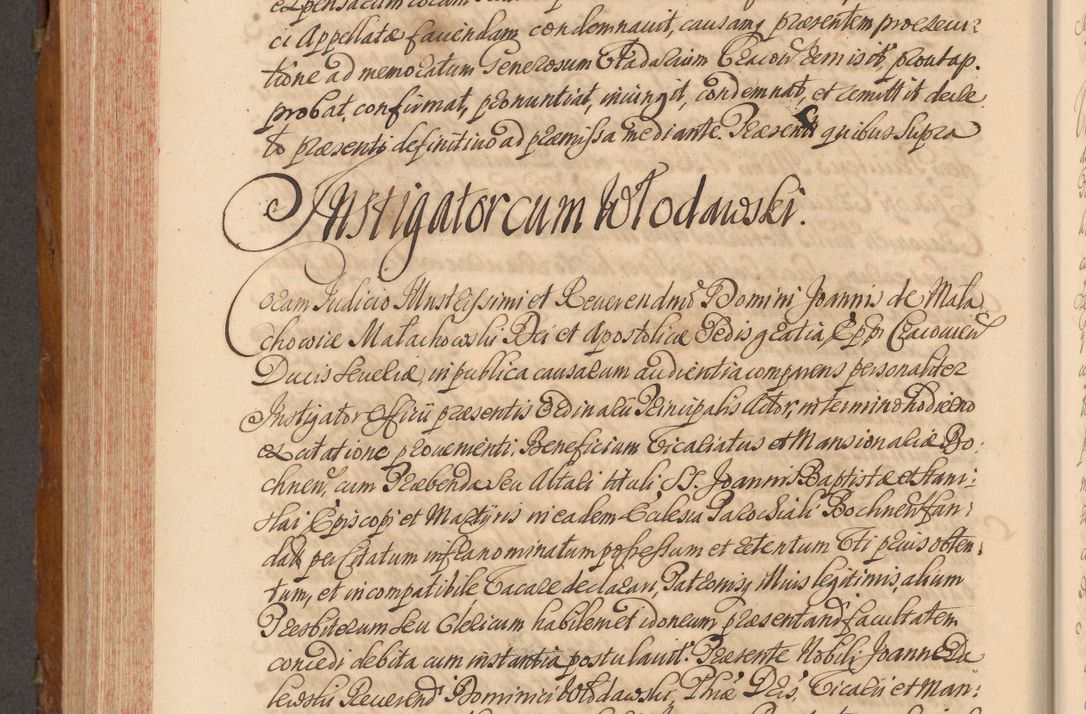 ci Appellatæ favendam condemnavit, causamq præsentem prosecu:
tione ad memoratum Generosum Stadarium Cracou remisit, prout ap.
probat, confirmat, pronuntiat, iniungit, condemnat, et remittit decre
to præsenti definitivo ad præmissa mediante. Præsent quibus supra
Instigator cum Włodawski.
Coram Judicio Illustrissimi et Reverendmi Domini Joannis de Mala
chowice Małachowski Dei et Apostolicæ Sedis gratia, Eppi Cracovien
Ducis Severiæ, in publica causarum audientia comparens personaliter
Instigator Officii præsentis Ordinarii Principalis Actor, in termino hodierno
ex citatione provenienti, Beneficium Vicariatus et Mansionariæ Bo:
chnen, cum Præbenda seu Altari tituli SS. Joannis Baptistæ et Stani:
slai Episcopi et Martyris in eadem Ecclesia Parochiali Bochnen fun:
dat, per Citatum infranominatum possessum et retentum Uti prius obten:
tum, et incompatibile Vacare declarari, Paternisq illius legitimis, alium
Presbiterum seu Clericum habilem et idoneum præsentand facultatem
concedi debita cum instantia postulavit. Præsente Nobili Joanne Da
lewski Reverend Dominici Włodawski, Phiæ Dris, Vicarii et Man: